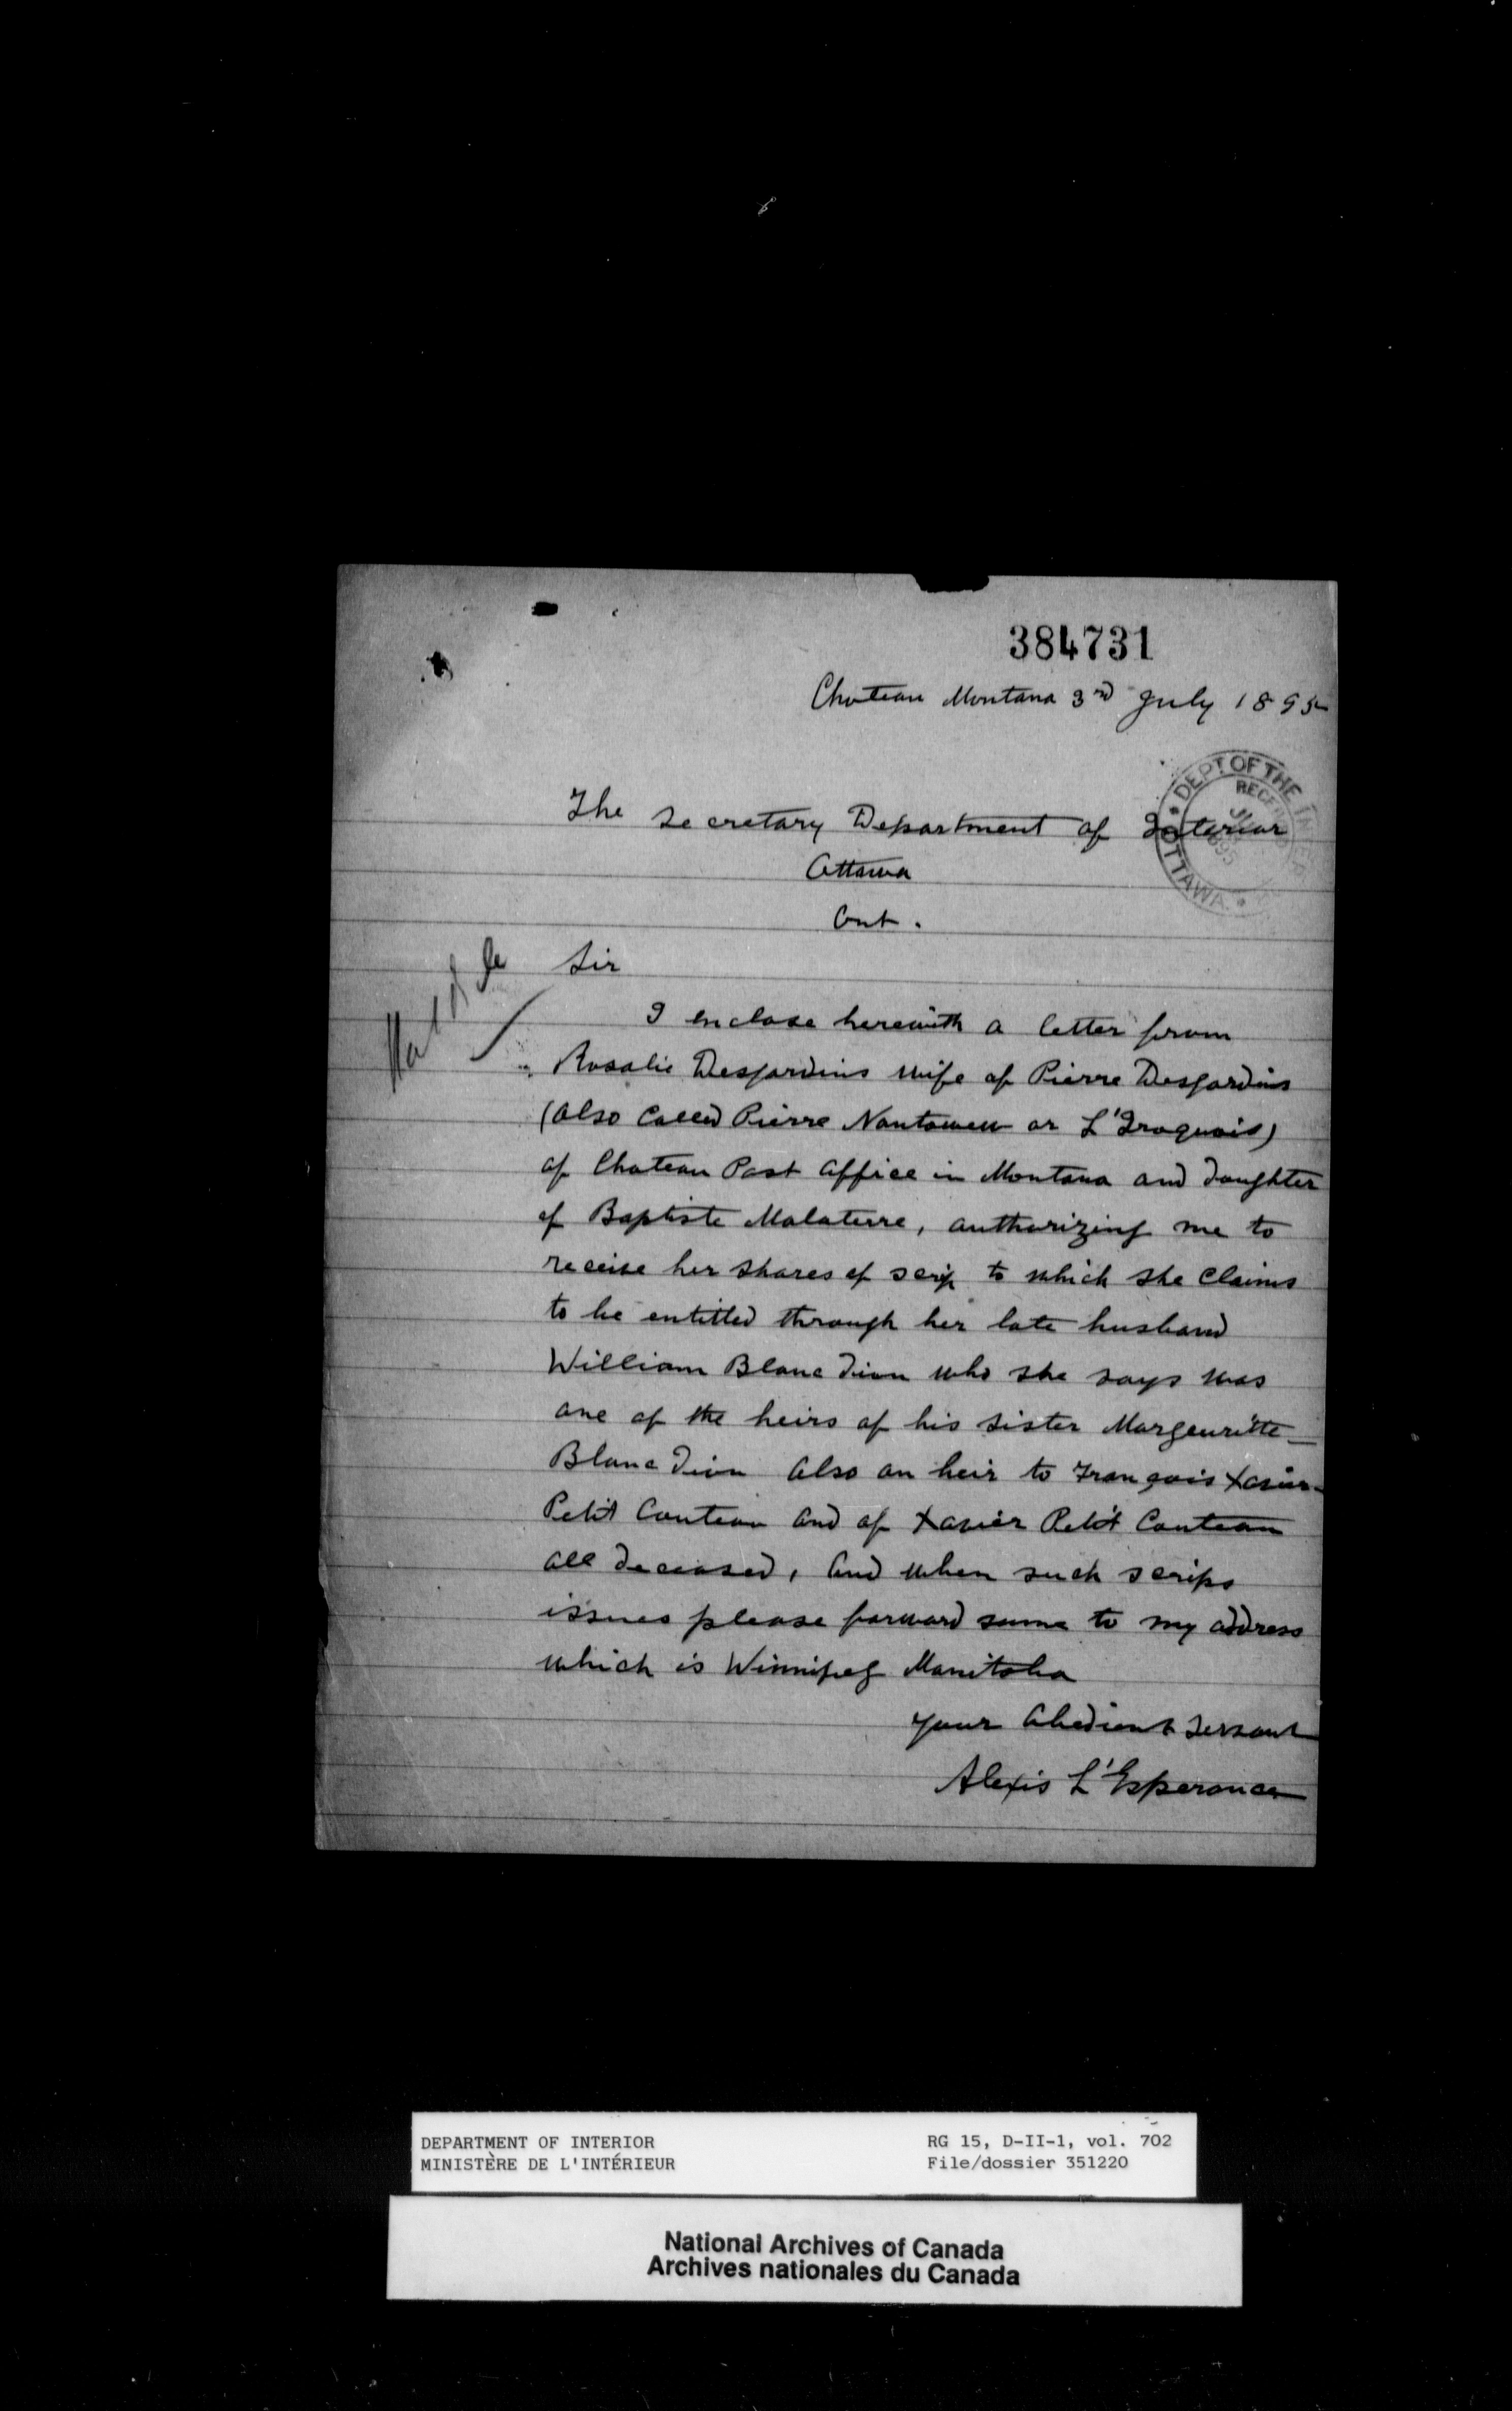 384731
Choteau Montana 3rd July 1895
DEPT OF THE INTERIOR
RECEIVED
1895
OTTAWA
The Secretary Department of Interior
Ottawa
Ont.
Sir
I enclose herewith a letter from
Rosalie Desjardins wife of Pierre Desjardins
(also called Pierre Nantowew or L'Iroquois)
of Choteau Post Office in Montana and daughter
of Baptiste Malaterre, authorizing me to
receive her shares of scrip to which she claims
to be entitled through her late husband
William Blanc Dion who she says was
one of the heirs of his sister Margeuritte
Blanc Dion also an heir to François Xavier
Petit Couteau and of Xavier Petit Couteau
all deceased, and when such scrips
issues please forward same to my address
which is Winnipeg Manitoba
Your Obedient Servant
Alexis L'Esperance
DEPARTMENT OF INTERIOR
MINISTÈRE DE L'INTÉRIEUR
RG 15, D-II-1, vol. 702
File/dossier 351220
National Archives of Canada
Archives nationales du Canada